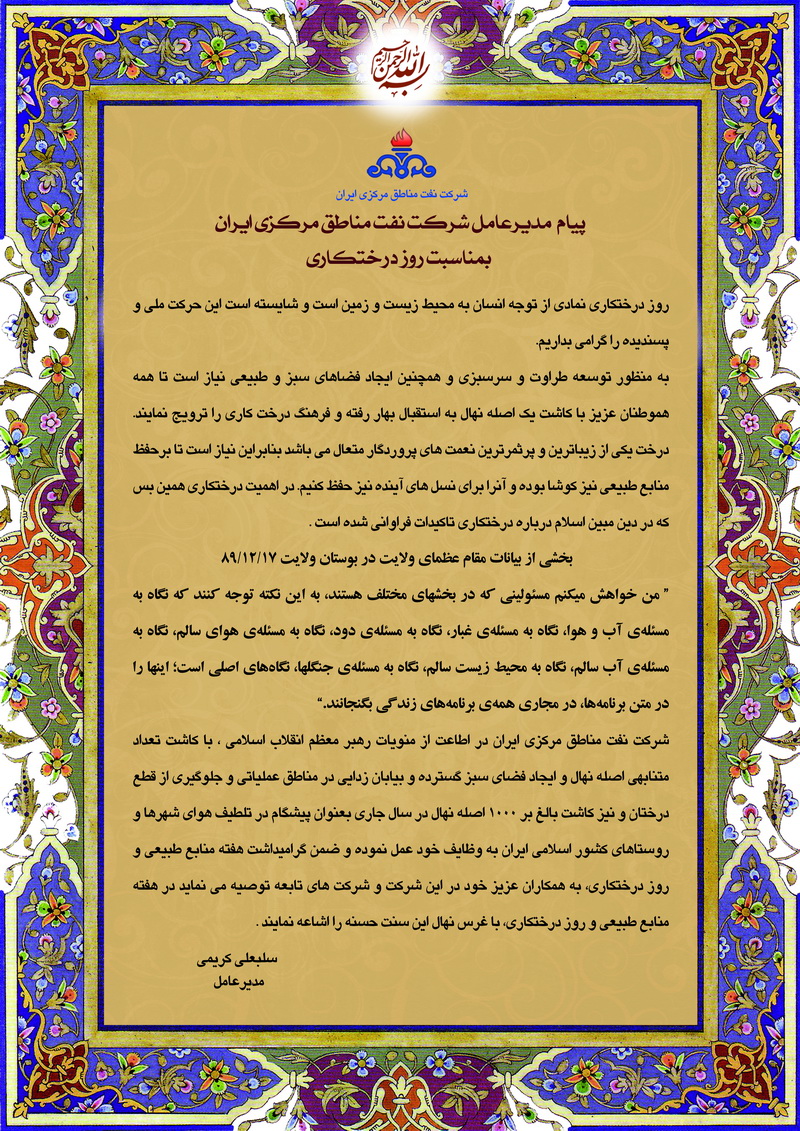 بسم الله الرحمن الرحیم
شرکت نفت مناطق مرکزی ایران
پیام مدیرعامل شرکت نفت مناطق مرکزی ایران
بمناسبت روز درختکاری
روز درختکاری نمادی از توجه انسان به محیط زیست و زمین است و شایسته است این حرکت ملی و
پسندیده را گرامی بداریم.
به منظور توسعه طراوت و سرسبزی و همچنین ایجاد فضاهای سبز و طبیعی نیاز است تا همه
هموطنان عزیز با کاشت یک اصله نهال به استقبال بهار رفته و فرهنگ درخت کاری را ترویج نمایند.
درخت یکی از زیباترین و پرثمرترین نعمت های پروردگار متعال می باشد بنابراین نیاز است تا برحفظ
منابع طبیعی نیز کوشا بوده و آنرا برای نسل های آینده نیز حفظ کنیم. در اهمیت درختکاری همین بس
که در دین مبین اسلام درباره درختکاری تاکیدات فراوانی شده است .
بخشی از بیانات مقام عظمای ولایت در بوستان ولایت ۸۹/۱۲/۱۷
" من خواهش میکنم مسئولینی که در بخشهای مختلف هستند، به این نکته توجه کنند که نگاه به
مسئله‌ی آب و هوا، نگاه به مسئله‌ی غبار، نگاه به مسئله‌ی دود، نگاه به مسئله‌ی هوای سالم، نگاه به
مسئله‌ی آب سالم، نگاه به محیط زیست سالم، نگاه به مسئله‌ی جنگلها، نگاه‌های اصلی است؛ اینها را
در متن برنامه‌ها، در مجاری همه‌ی برنامه‌های زندگی بگنجانند."
شرکت نفت مناطق مرکزی ایران در اطاعت از منویات رهبر معظم انقلاب اسلامی ، با کاشت تعداد
متنابهی اصله نهال و ایجاد فضای سبز گسترده و بیابان زدایی در مناطق عملیاتی و جلوگیری از قطع
درختان و نیز کاشت بالغ بر ۱۰۰۰ اصله نهال در سال جاری بعنوان پیشگام در تلطیف هوای شهرها و
روستاهای کشور اسلامی ایران به وظایف خود عمل نموده و ضمن گرامیداشت هفته منابع طبیعی و
روز درختکاری، به همکاران عزیز خود در این شرکت و شرکت های تابعه توصیه می نماید در هفته
منابع طبیعی و روز درختکاری، با غرس نهال این سنت حسنه را اشاعه نمایند .
سلبعلی کریمی
مدیرعامل